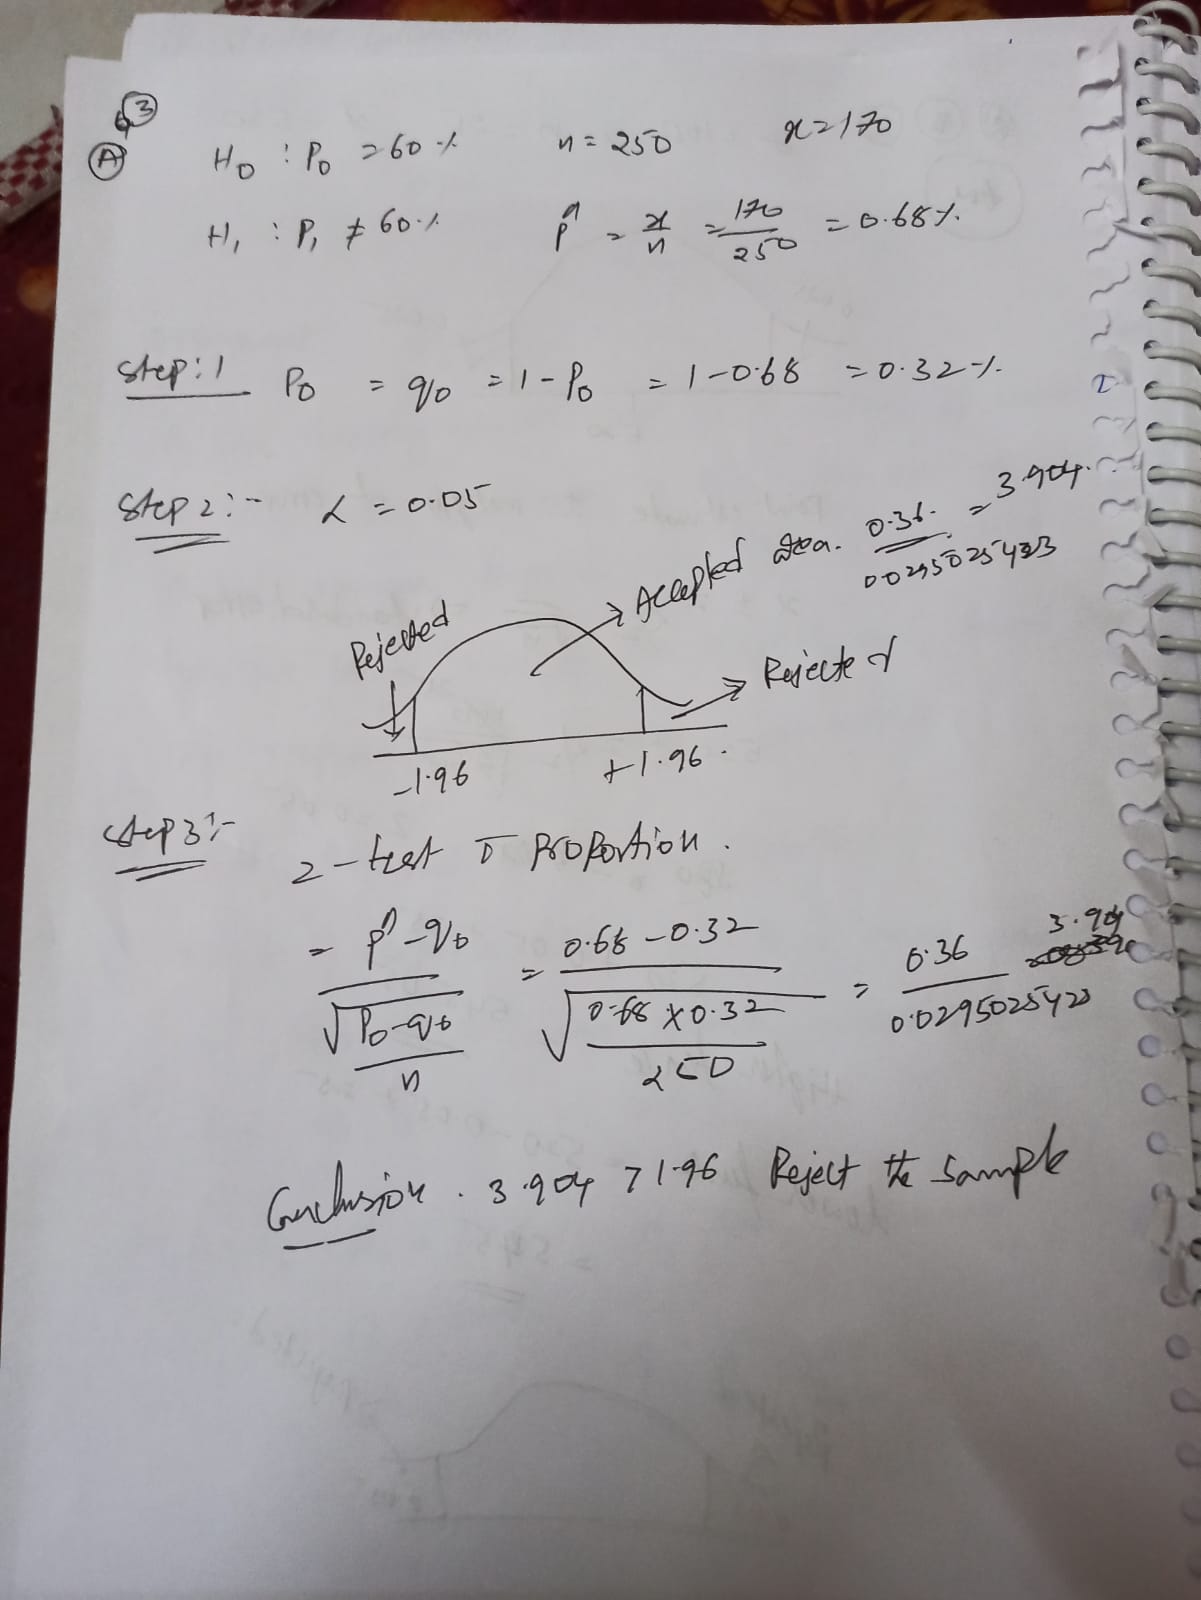 3
A
H0 : P0 = 60 % n = 250 x = 170
H1 : P1 ≠ 60 % p̂ = x/n = 170/250 = 0.68 %.
Step: 1 P0 = q0 = 1 - P0 = 1 - 0.68 = 0.32 %.
Step 2 :- α = 0.05
Accepted area. 0.36. / 0.0295025423 = 3.904.
Rejected
Rejected
-1.96 +1.96 .
Step 3 :-
z - test Proportion .
= p̂ - q0 / √ P0 - q0 / n = 0.68 - 0.32 / √ 0.68 x 0.32 / 250 = 0.36 / 0.0295025423 3.904
Conclusion . 3.904 > 1.96 Reject the Sample